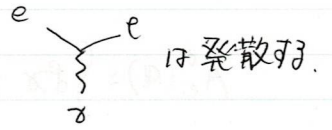 e e
は発散する.
γ